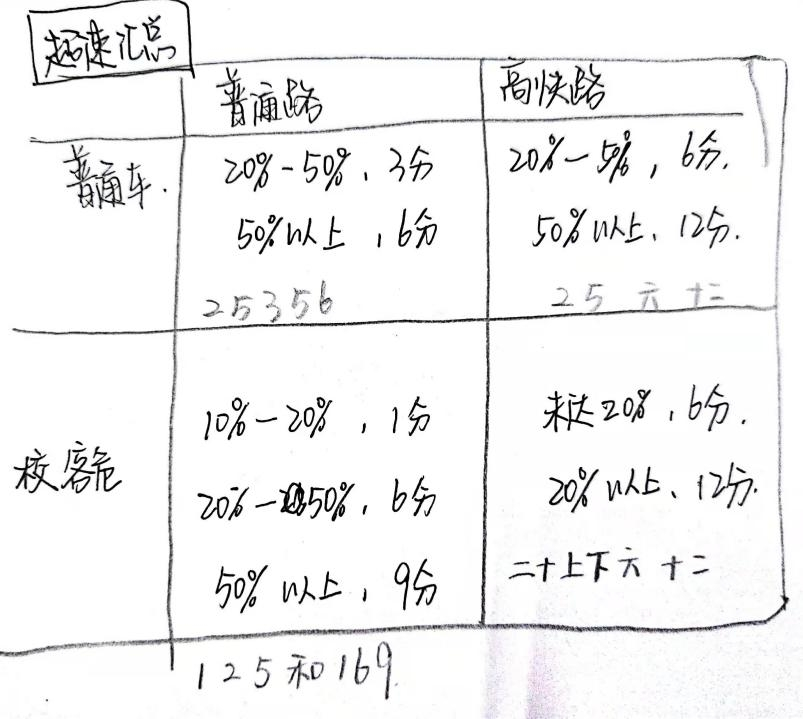 超速汇总
普通路 高快路
普通车. 20%-50%, 3分 20%-50%, 6分.
50%以上, 6分 50%以上, 12分.
25356 25 六 十二
10%-20%, 1分 未达20%, 6分.
校客危 20%-50%, 6分 20%以上, 12分.
50%以上, 9分 二十上下六 十二
125和169